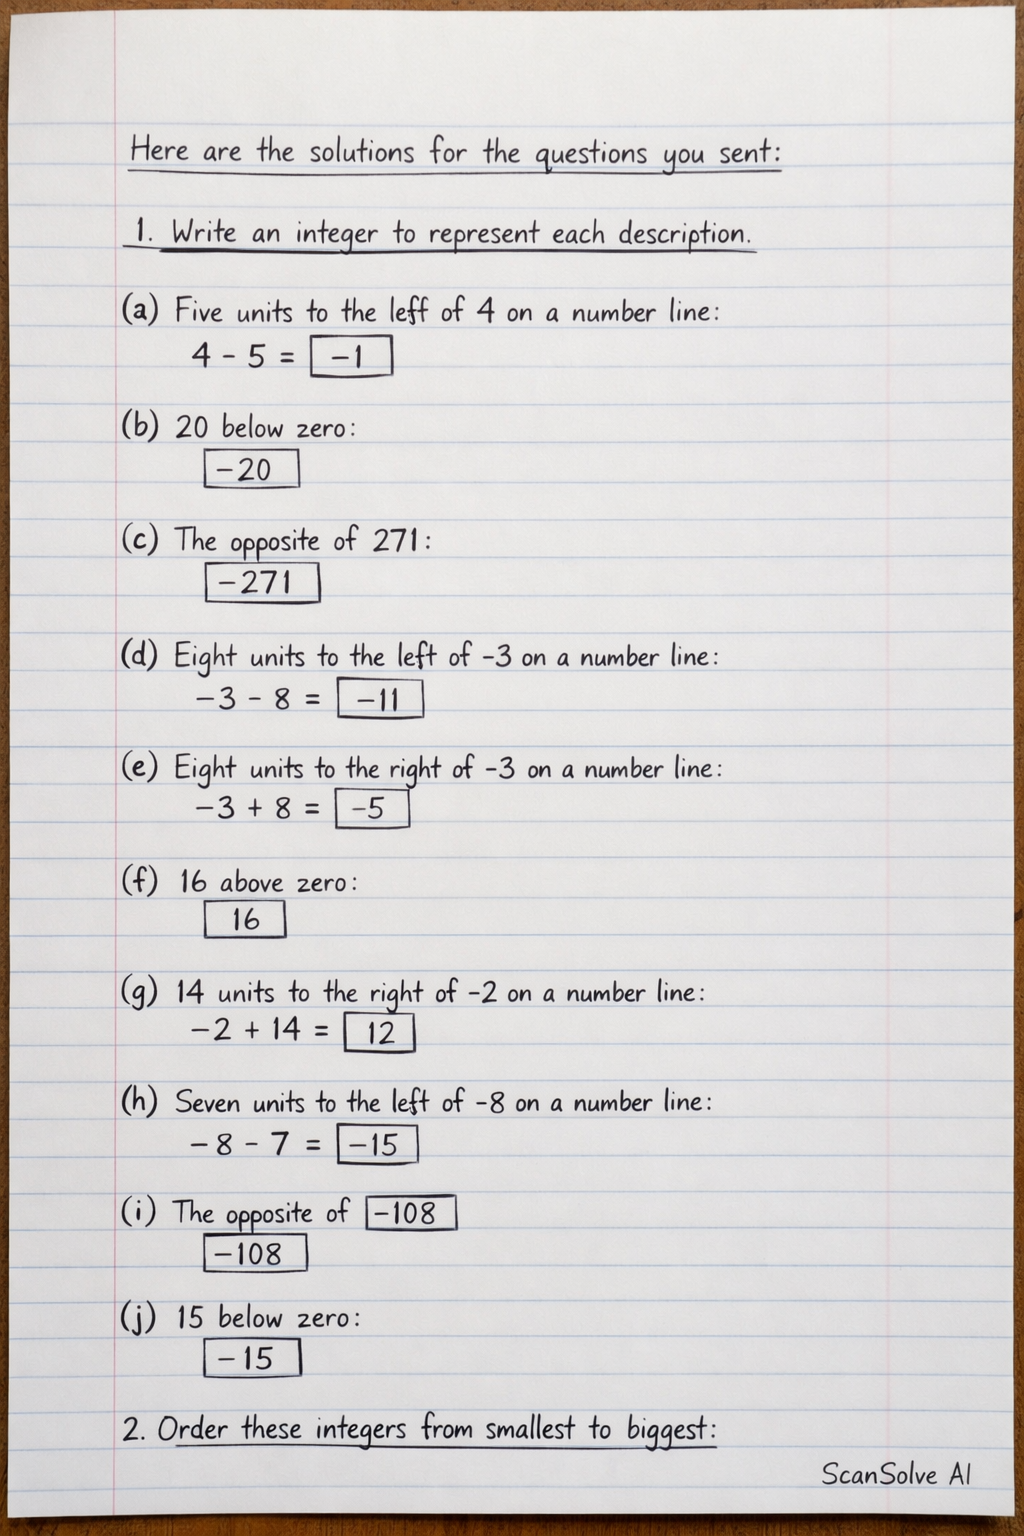 Here are the solutions for the questions you sent:
1. Write an integer to represent each description.
(a) Five units to the left of 4 on a number line:
4 - 5 = -1
(b) 20 below zero:
-20
(c) The opposite of 271:
-271
(d) Eight units to the left of -3 on a number line:
-3 - 8 = -11
(e) Eight units to the right of -3 on a number line:
-3 + 8 = -5
(f) 16 above zero:
16
(g) 14 units to the right of -2 on a number line:
-2 + 14 = 12
(h) Seven units to the left of -8 on a number line:
-8 - 7 = -15
(i) The opposite of -108
-108
(j) 15 below zero:
-15
2. Order these integers from smallest to biggest:
ScanSolve AI